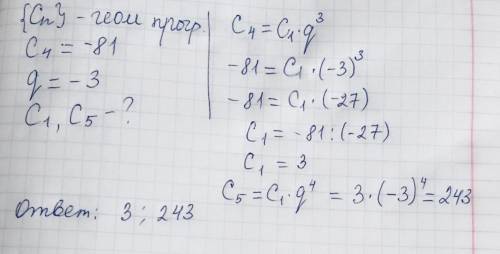 {Cn} - геом прогр.
C₄ = -81
q = -3
C₁, C₅ - ?
C₄ = C₁ · q³
-81 = C₁ · (-3)³
-81 = C₁ · (-27)
C₁ = -81 : (-27)
C₁ = 3
C₅ = C₁ · q⁴ = 3 · (-3)⁴ = 243
Ответ: 3 ; 243